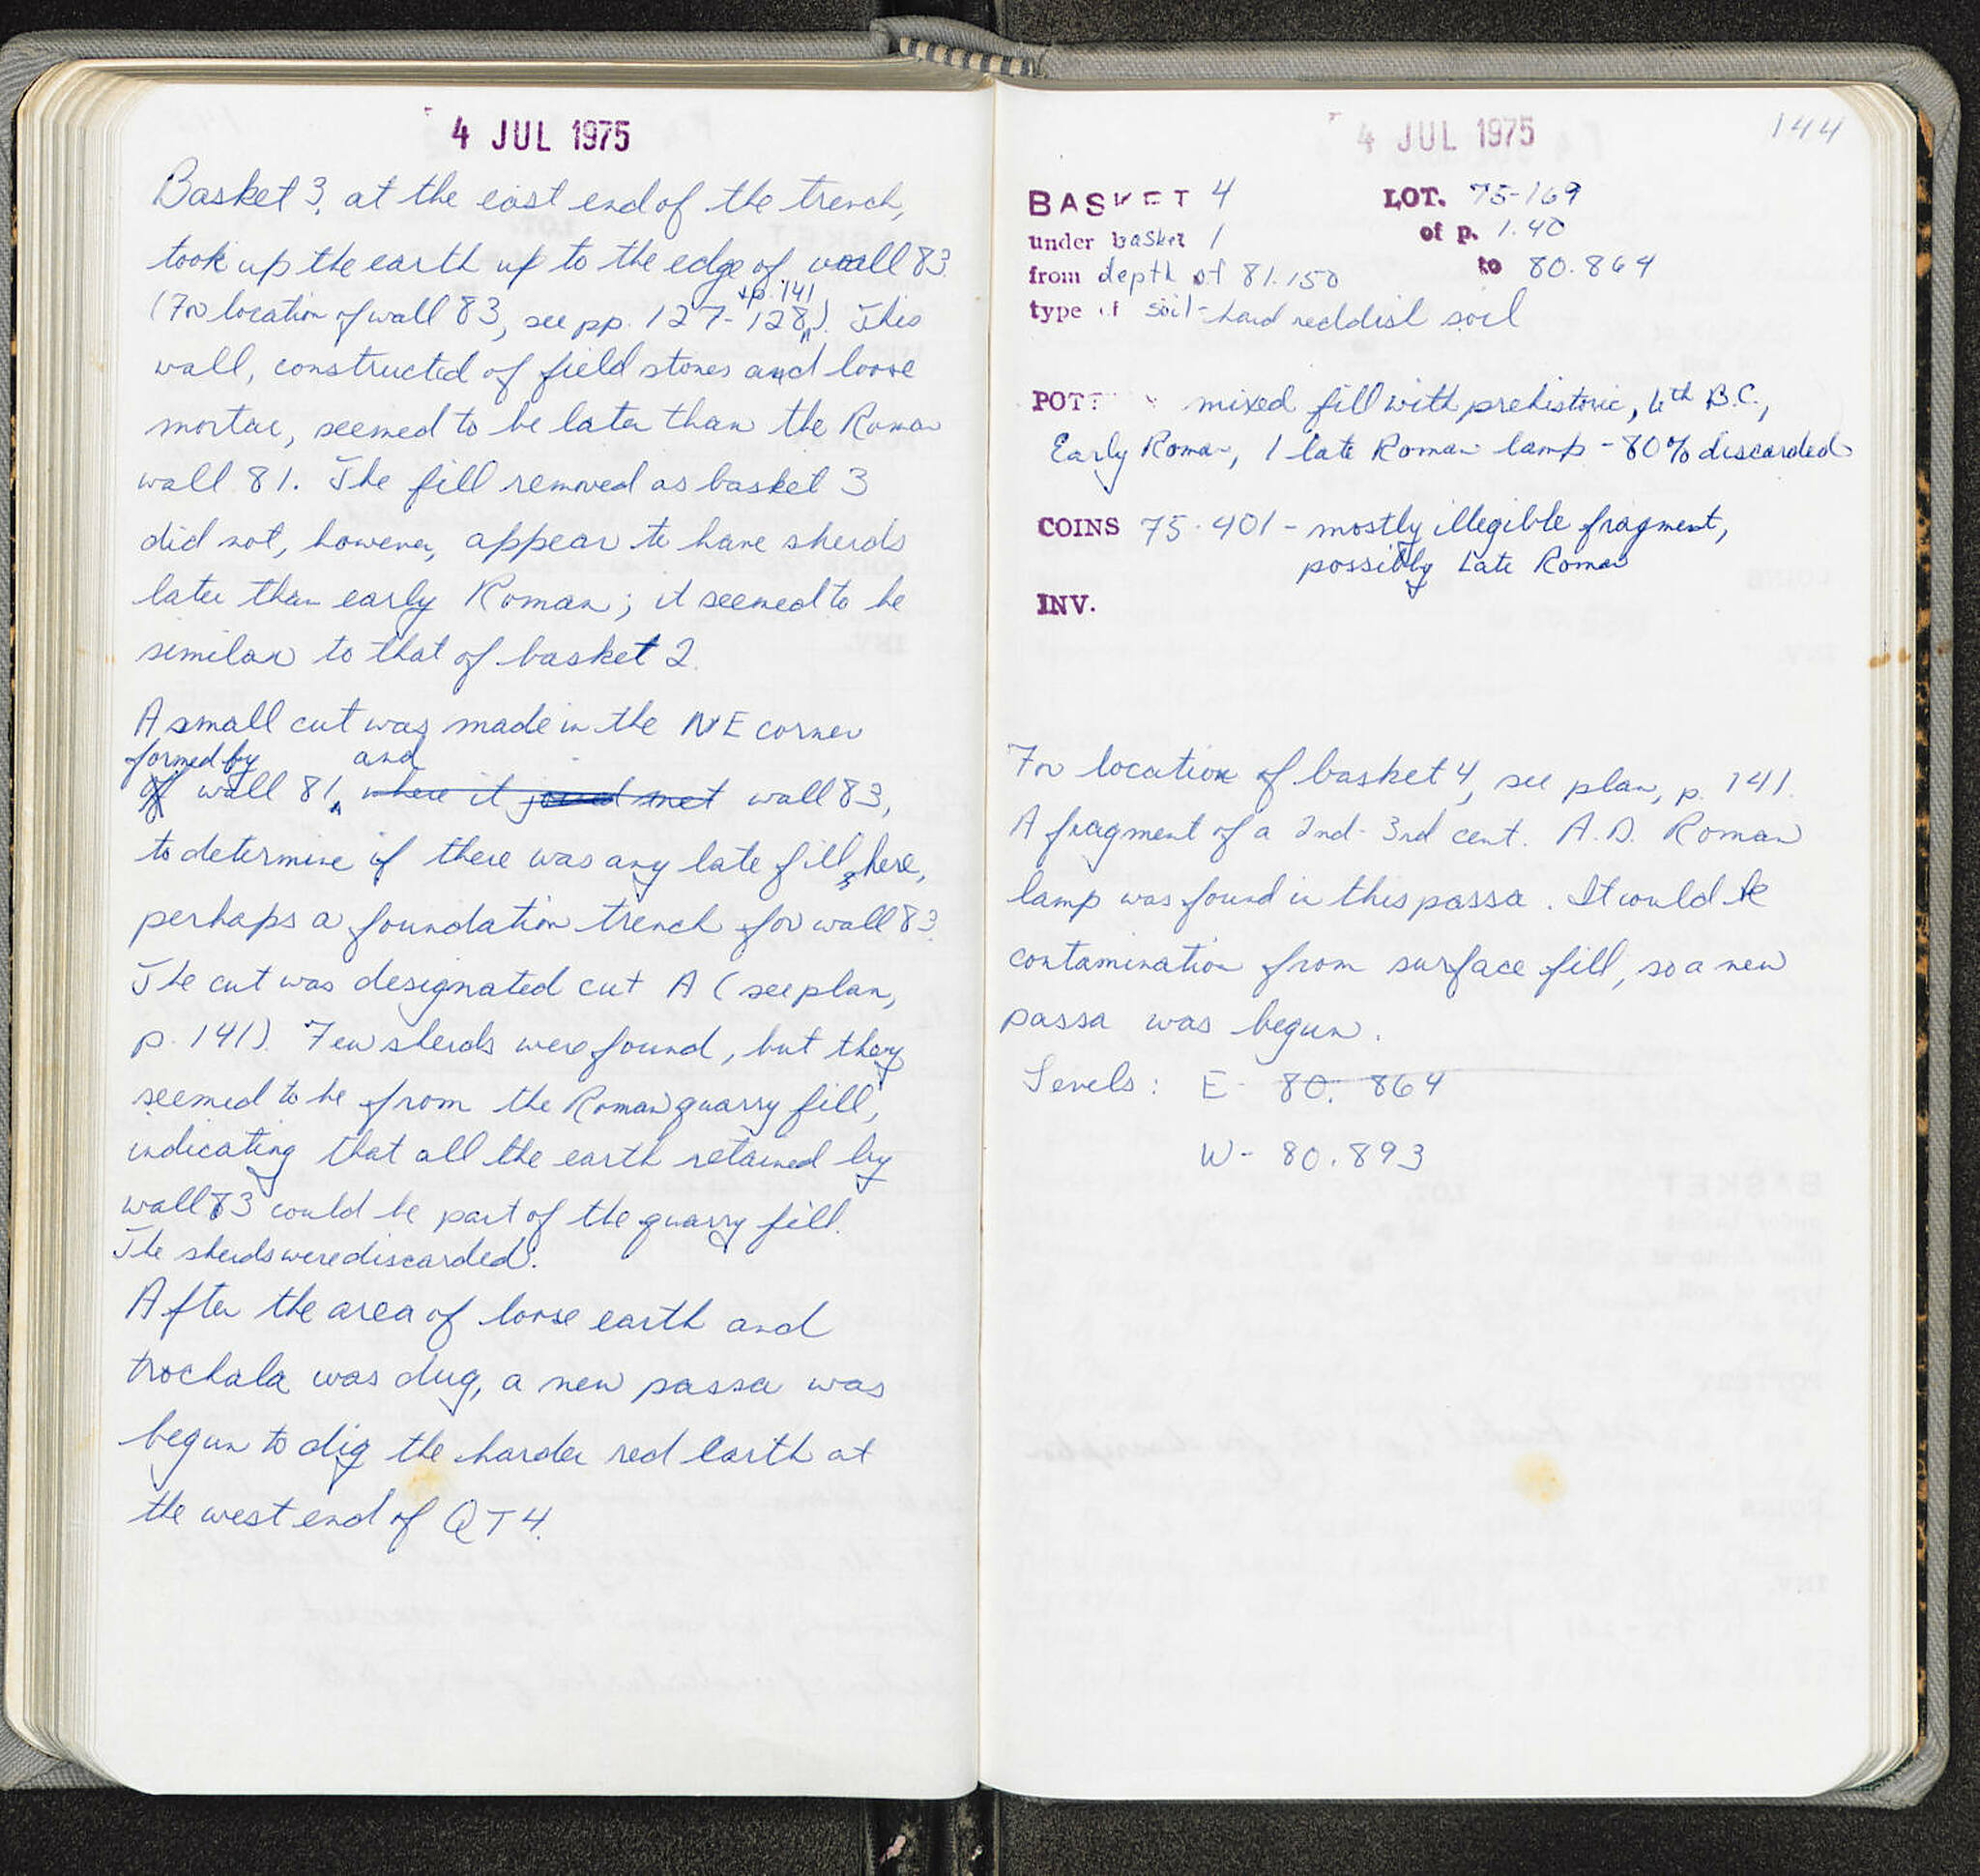 4 JUL 1975
Basket 3, at the east end of the trench,
took up the earth up to the edge of wall 83.
+p. 141
(For location of wall 83, see pp. 127-128). This
wall, constructed of field stones and loose
mortar, seemed to be later than the Roman
wall 81. The fill removed as basket 3
did not, however, appear to have sherds
later than early Roman; it seemed to be
similar to that of basket 2.
A small cut was made in the NE corner
formed by and
of wall 81, where it joined met wall 83,
to determine if there was any late fill here,
perhaps a foundation trench for wall 83.
The cut was designated cut A (see plan,
p. 141). Few sherds were found, but they
seemed to be from the Roman quarry fill,
indicating that all the earth retained by
wall 83 could be part of the quarry fill.
The sherds were discarded.
After the area of loose earth and
trochala was dug, a new passa was
begun to dig the harder red earth at
the west end of QT4.
4 JUL 1975
144
BASKET 4 LOT. 75-169
under basket 1 of p. 1.40
from depth of 81.150 to 80.864
type of soil - hard reddish soil
POTTERY mixed fill with prehistoric, 4th B.C.,
Early Roman, 1 late Roman lamp - 80% discarded
COINS 75-401 - mostly illegible fragment,
possibly Late Roman
INV.
For location of basket 4, see plan, p. 141.
A fragment of a 2nd-3rd cent. A.D. Roman
lamp was found in this passa. It could be
contamination from surface fill, so a new
passa was begun.
Levels: E - 80.864
W - 80.893